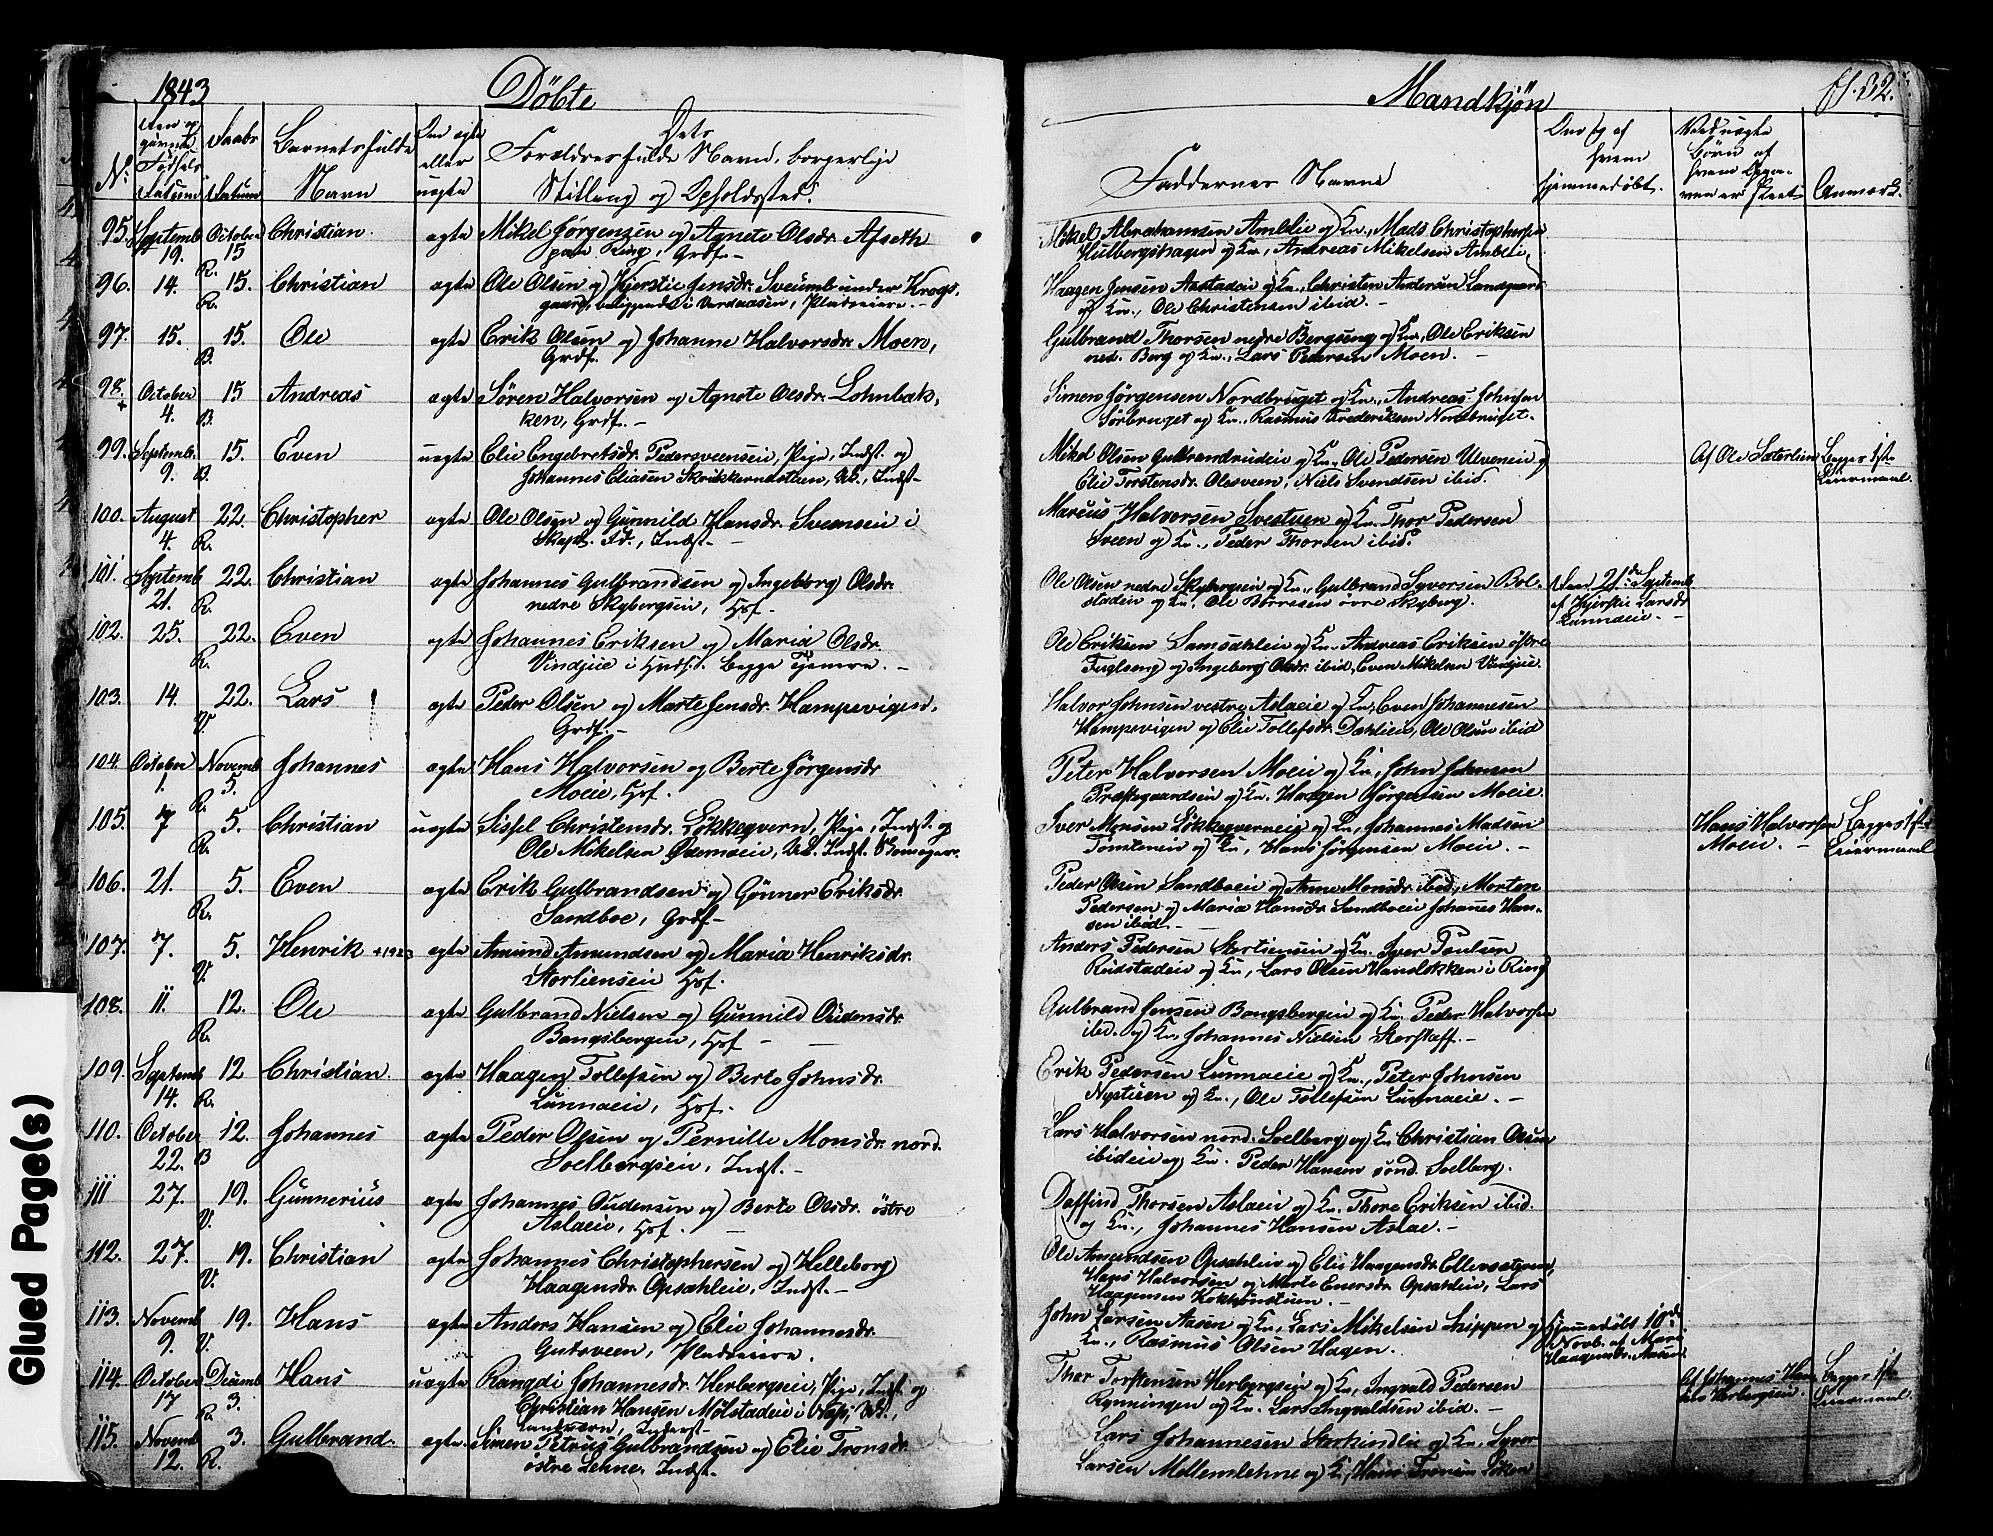 1843 Döbte
Mandkjøn
32.
Daabs
Barnets fulde
Dets
eller
Forældres fulde Navne, borgerlige
N:
Datum
Datum
Navn
uegte
Stilling og Opholdssted.
Faddernes Navne
hjemmedøbt.
Børn af
Anmærk.
95. Septemb October Christian. egte Mikel Jørgensen og Agnete Olsdr. Afseth
19. 15
Ring, Grdf.
R.
Mikel Abrahamsen Amblie og Kn., Mads Christophersen
Hulbergshagen og Kn., Andreas Mikelsen Amblie,
96. 14. 15. Christian egte Ole Olsen og Kjerstie Jensdr. Sveumb under Krogs,
R.
Haagen Jensen Aastadeie og Kn., Christen Andersen Landgaard
og Kn., Ole Christensen ibid. -
97. 15. 15. Ole egte Erik Olsen og Johanne Halvorsdr. Moen,
B. Grdf.
Gulbrand Thorsen nedre Bergseng og Kn., Ole Eriksen
ned. Berg og Kn., Lars Pedersen Moen. -
98. October 15 Andreas egte Søren Halvorsen og Agnete Olsdr. Lohnbak,
4. B. ken, Grdf. -
Simen Jørgensen Nordbruget og Kn., Andreas Johnsen
Sørbruget og Kn., Rasmus Frederiksen Nordbruget.
99. Septemb. 15. Even uegte Elie Engebretsdr. Pedersveenseie, Pige, Indst. og
9. B. Johannes Eliasen Indst. -
Mikel Olsen Gulbrandrudeie og Kn., Ole Pedersen Ulveneie og
Elie Torstensdr. Olesveen, Niels Svendsen ibid.
Af Ole Sæterlien
Begges 1ste
Leiermaal.
100. August 22. Christopher egte Ole Olsen og Gunnild Hansdr. Sveenseie i
4. R. Indst. -
Marcus Halvorsen Svestuen og Kn. Thor Pedersen
Sveen og Kn., Peder Thorsen ibid.
101. Septemb 22. Christian egte Johannes Gulbrandsen og Ingeborg Olsdr.
21. R. nedre Skybergseie, Hsf.
Ole Olsen nedre Skybergseie og Kn., Gulbrand Syversen Bol-
stadeie og Kn., Ole Børresen övre Skyberg.
Den 21de Septemb
af Kjerstie Larsdr
Lunnaeie. -
102. 25. 22. Even egte Johannes Eriksen og Maria Olsdr.
R. Vindjue i begge Tjenere. -
Ole Eriksen Samsahleie og Kn. Andreas Eriksen östre
Fuglseng og Ingeborg Olsdr. ibid, Even Mikelsen Vindjue.
103. 14. 22. Lars egte Peder Olsen og Marte Jensdr. Hampevigen,
V. Grdf. -
Halvor Johnsen vestre Aslaeie og Kn., Even Johannesen
Hampevigen og Elie Tollefsdr. Dahlien, Ole Olsen ibid
104 October Novemb Johannes egte Hans Halvorsen og Berte Jørgensdr
1. 5. Moeie, Hsf.
R.
Peter Halvorsen Moeie og Kn., John Johnsen
Præstegaardseie og Kn. Haagen Jørgensen Moeie.
105. 7 5. Christian uegte Sissel Christensdr. Løkkeqvern, Pige, Indst. og
R. Ole Mikelsen Indst.
Iver Monsen Løkkeqverneie og Kn., Johannes Madsen
Tomteneie og Kn., Hans Jørgensen Moeie. -
Hans Halvorsen
Moeie. -
Begges 1ste
Leiermaal
106. 21. 5. Even egte Erik Gulbrandsen og Gønner Eriksdr.
R. Sandboe, Grdf -
Peder Olsen Sandboeie og Anne Monsdr. ibid, Morten
Pedersen og Maria Hansdr. Sandboeie Johannes Han-
sen ibid. -
107. 7. 5. Henrik egte Amund Amundsen og Maria Henriksdr.
V. Stortienseie Hsf.
Anders Pedersen Stortienseie og Kn. Iver Poulsen
Rudstadeie og Kn., Lars Olsen Hansløkken i Ring
108. 11. 12. Ole egte Gulbrand Nielsen og Gunnild Oudensdr.
R. Bangsbergeie, Hsf -
Gulbrand Jensen Bangsbergeie og Kn. Peder Halvorsen
ibid. og Kn. Johannes Nielsen -
109. Septemb 12 Christian. egte Haagen Tollefsen og Berte Johnsdr.
14. R. Lunnaeie, Hsf.
Erik Pedersen Lunnaeie og Kn., Peter Johnsen
Nystuen og Kn., Ole Tollefsen Lunnaeie. -
110. October 12. Johannes egte Peder Olsen og Pernille Monsdr. nord.
22. B Soelbergseie, Indst. -
Lars Halvorsen nord. Soelberg og Kn Christian Olsen
ibideie og Kn. Peder Hansen sönd. Soelberg.
111 27. 19. Gunnerius egte Johannes Oudensen og Berte Olsdr. östre
V. Aslaeie, Hsf. -
Dalfind Thorsen Aslaeie og Kn. Thore Eriksen ibid.
og Kn., Johannes Hansen Aslae. -
112. 27. 19. Christian egte Johannes Christophersen og Helleborg
V. Haagensdr. Opsahleie, Indst. -
Ole Amundsen Opsahleie og Elie Haagensdr.
Hans Halvorsen og Marte Enersdr. Opsahleie, Lars
Haagensen -
113. Novemb 19. Hans egte Anders Hansen og Elie Johannesdr.
9. V. Gutsveen, Pladseiere.
John Larsen Aasen og Kn., Lars Mikelsen og
Kn., Rasmus Olsen Hagen.
Hjemmedøbt 10de
Novb. af Mari
Haagensdr.
114. October Decemb Hans uegte Rangdi Johannesdr. Herbergseie, Pige, Indst. og
17 3. Christian Hansen Mølstadeie i
R.
Thor Torstensen Herbergseie og Kn., Ingvald Pedersen
Rynningen og Kn. Lars Ingvaldsen ibid. -
Af Johannes
Herbergseie. -
Begges 1ste
Leiermaal
115. Novemb 3. Gulbrand. egte. Simen Petrus Gulbrandsen og Elie Tronsdr.
12. R. östre Lehne, Indst.
Lars Johannesen og Kn., Syver
Larsen Mellemlehne og K., Hans Tronsen
Glued Page(s)